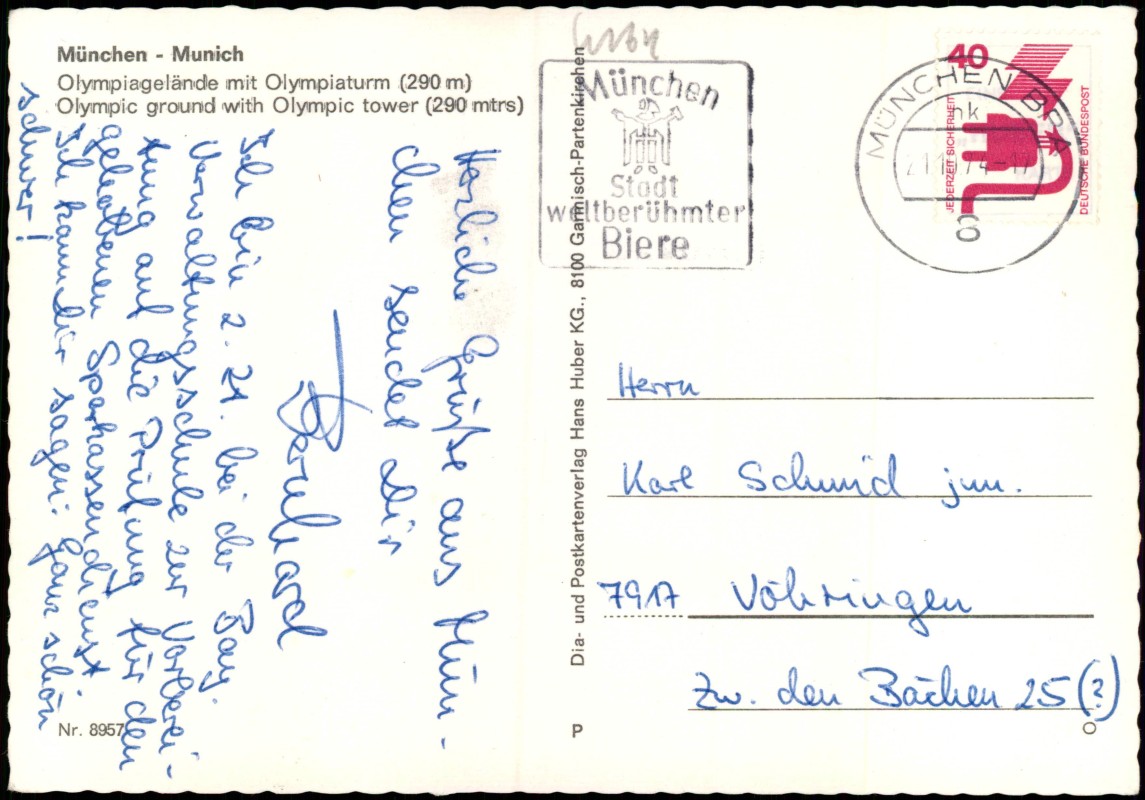 München - Munich
Olympiagelände mit Olympiaturm (290 m)
Olympic ground with Olympic tower (290 mtrs)
Herzliche Grüße aus Mün-
chen sendet Dir
Bernhard
Ich bin 2. 21. bei der Bay.
Verwaltungsschule zur Vorberei-
tung auf die Prüfung für den
gehobenen Sparkassendienst.
Ich kann Dir sagen: Ganz schön
schwer!
Nr. 8957
Dia- und Postkartenverlag Hans Huber KG., 8100 Garmisch-Partenkirchen
P
München
Stadt
weltberühmter
Biere
MÜNCHEN BPA
nk
74-17
CO
40
JEDERZEIT SICHERHEIT
DEUTSCHE BUNDESPOST
Herrn
Karl Schmid jun.
7917 Vöhringen
Zw. den Bächen 25 (?)
O